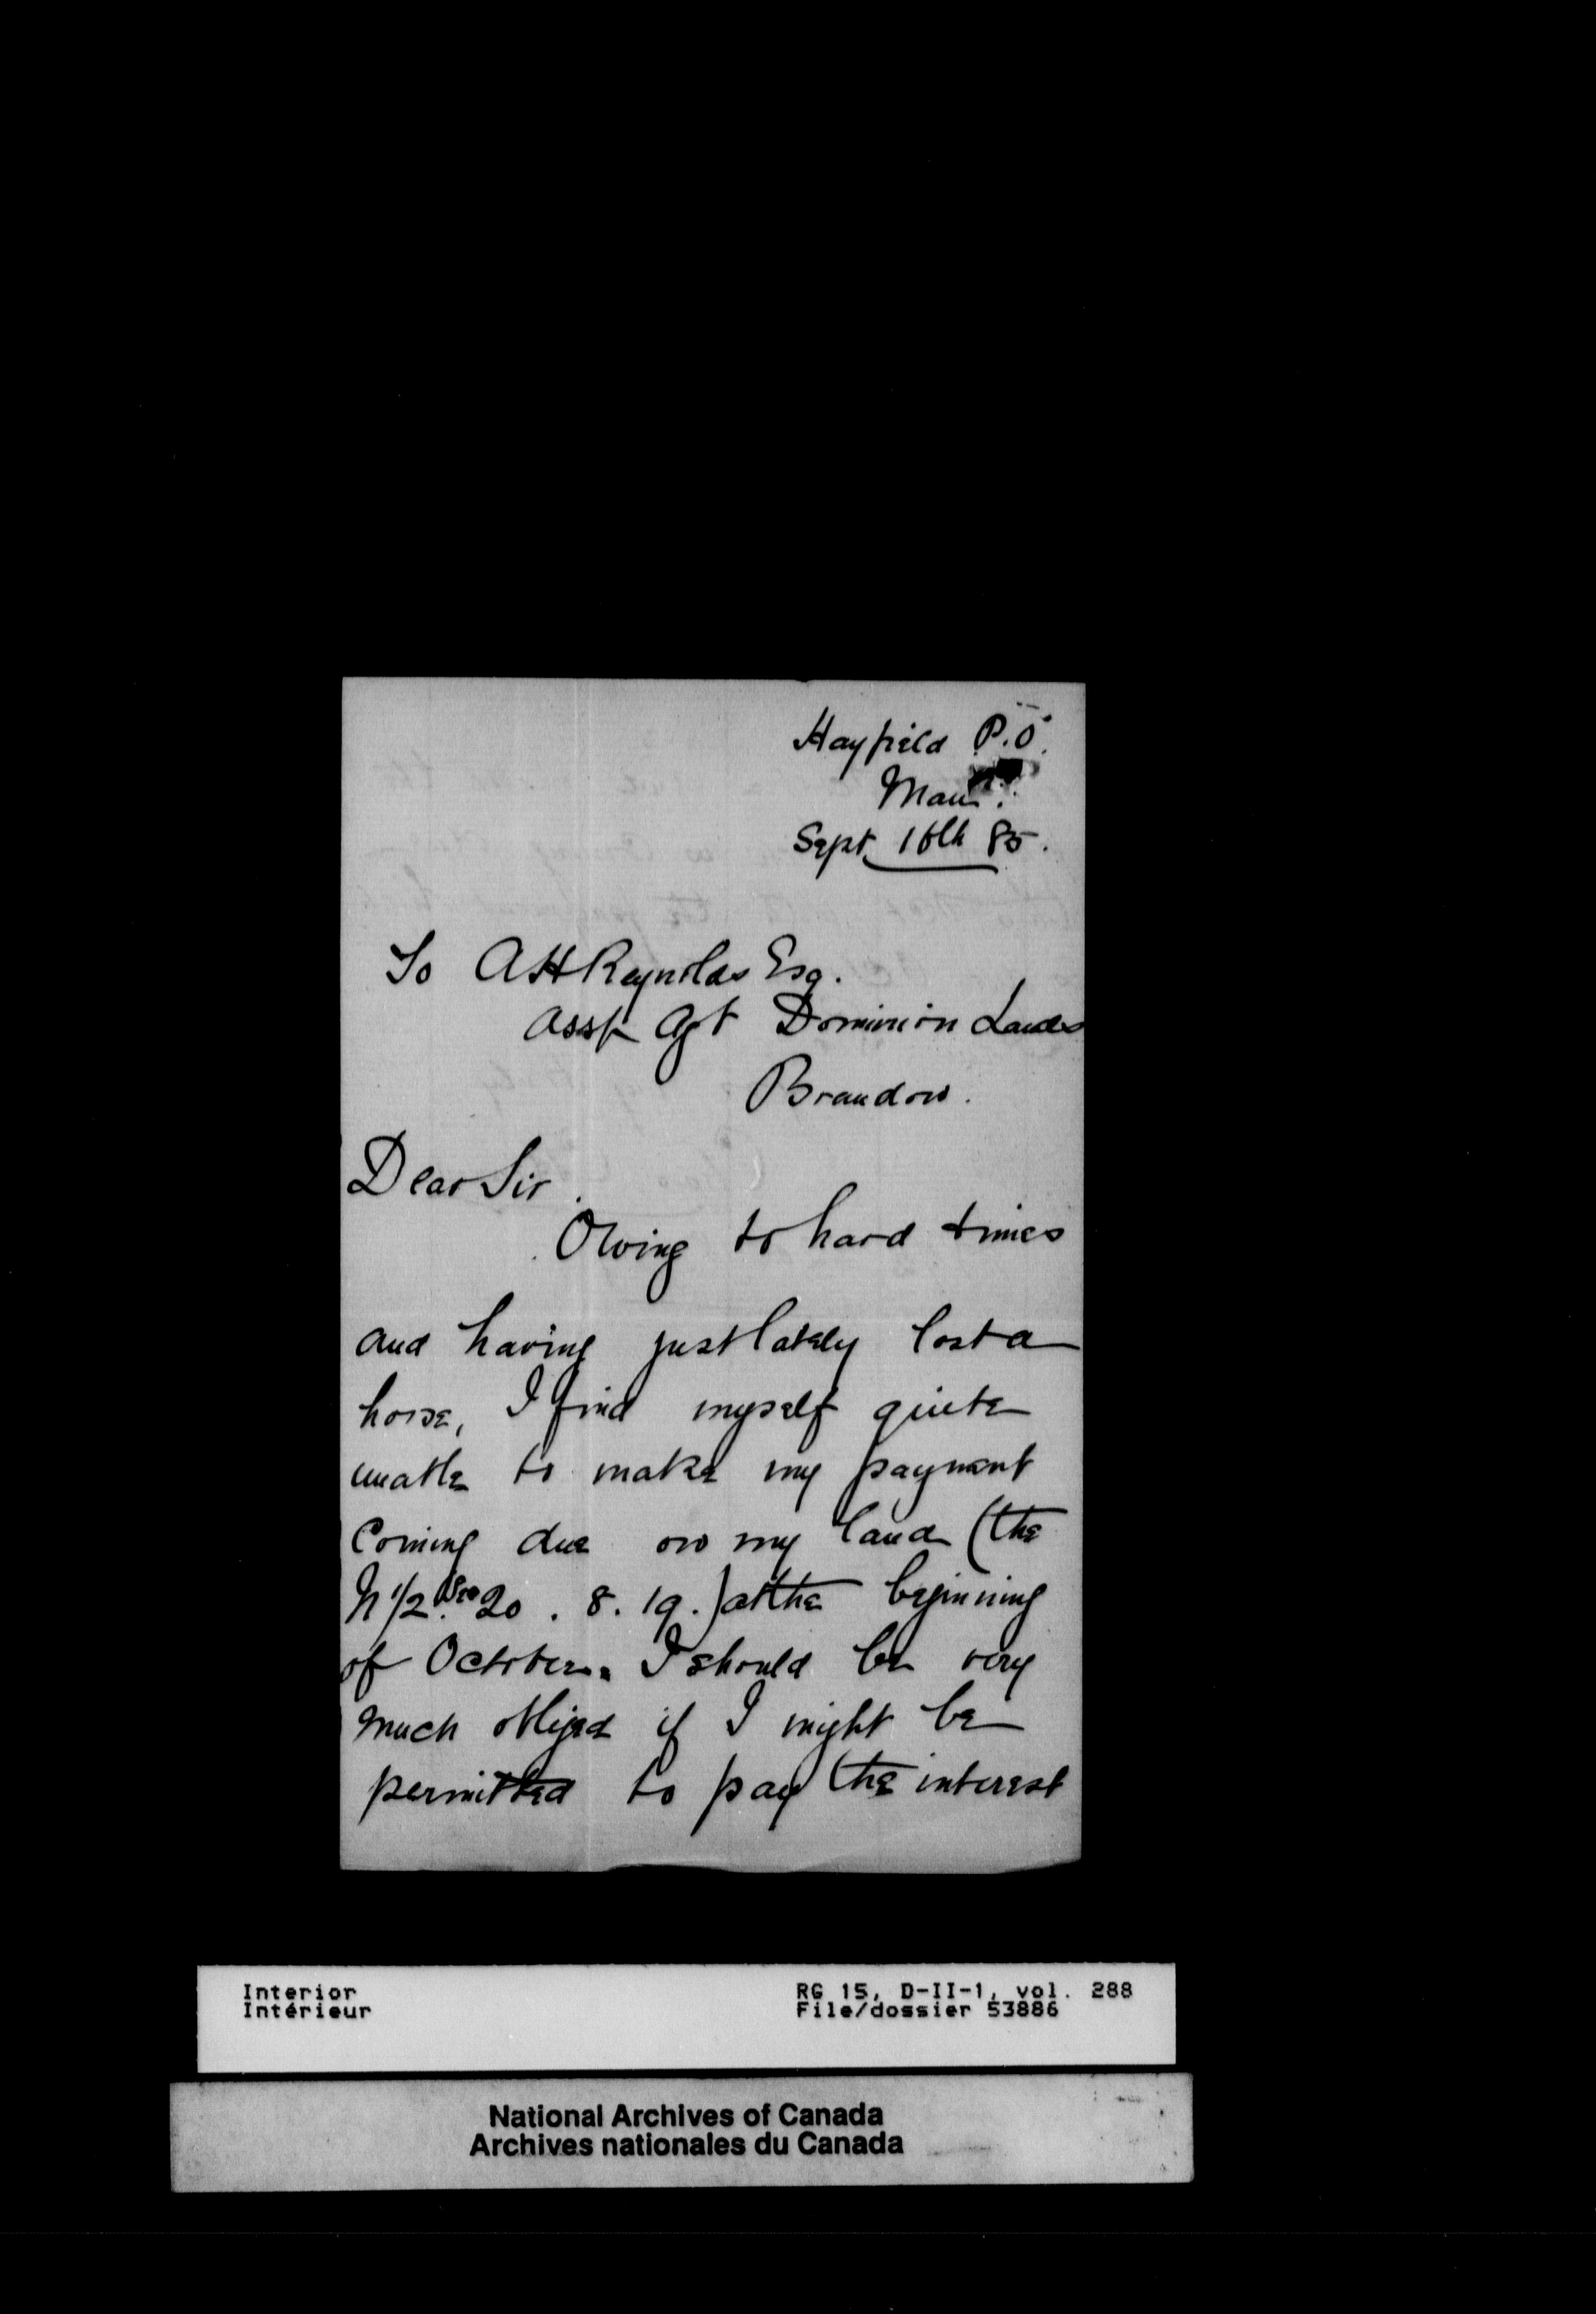 Hayfield P.O.
Man:
Sept. 16th 85.
To A H Reynolds Esq.
Asst Agt Dominion Lands
Brandon.
Dear Sir.
Owing to hard times
and having just lately lost a
horse, I find myself quite
unable to make my payment
Coming due on my land (the
N 1/2. Sec 20. 8. 19.) at the beginning
of October. I should be very
much obliged if I might be
permitted to pay the interest
Interior
Intérieur
RG 15, D-II-1, vol. 288
File/dossier 53886
National Archives of Canada
Archives nationales du Canada